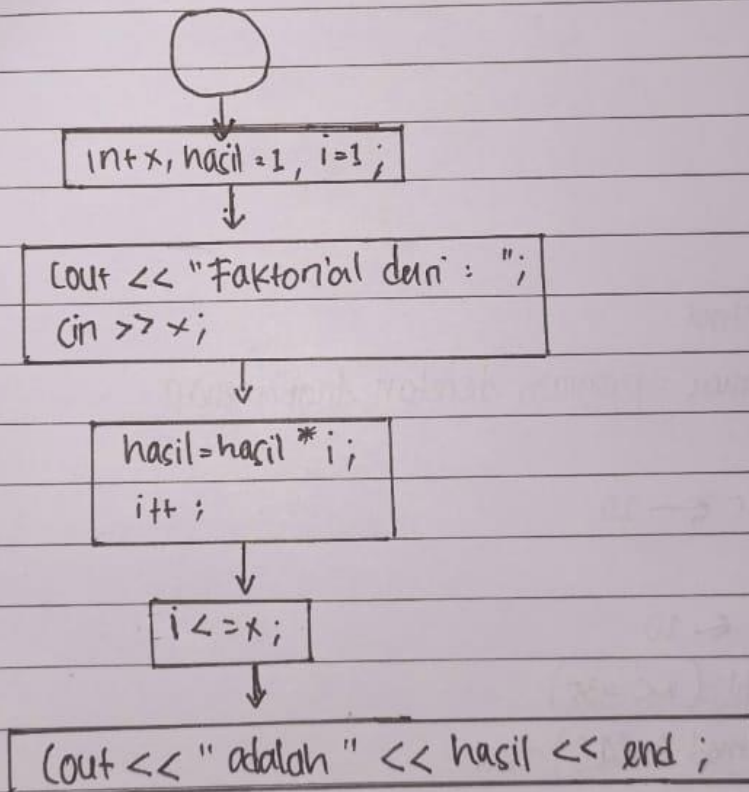 int x, hasil = 1, i=1;
Cout << "Faktorial dari : ";
Cin >> x;
hasil = hasil * i ;
i++ ;
i <= x ;
Cout << " adalah " << hasil << end ;